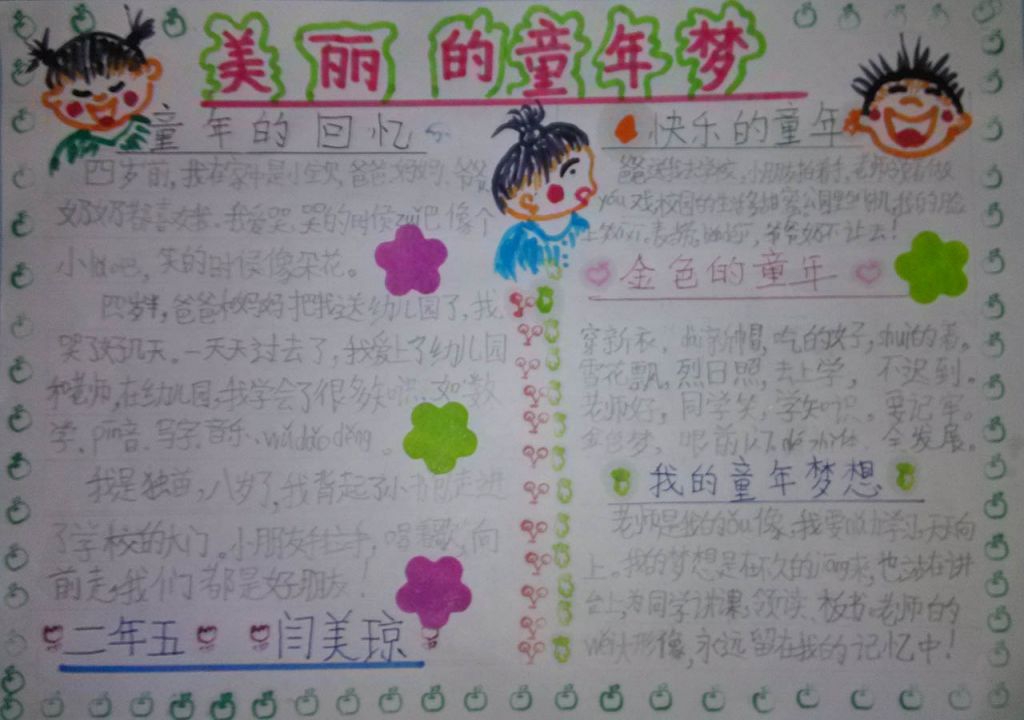 美丽的童年梦
童年的回忆
四岁前,我在家中是小宝贝,爸爸、妈妈、爷爷
奶奶都喜欢我。我爱哭,哭的时候 像个
小 ,笑的时候像朵花。
四岁半,爸爸和妈妈把我送幼儿园了,我
哭了好几天。一天天过去了,我爱上了幼儿园
和老师,在幼儿园,我学会了很多知识。如:数
学、pin音、写字、音乐、wǔdǎoděng。
我是独苗,八岁了,我背起了小书包走进
了学校的大门。小朋友手 手,唱 歌,向
前走,我们都是好朋友!
二年五 闫美琼
快乐的童年
爸 我去学校,小朋友 手,老师
you戏校园的生活多甜蜜。公园里 机,我的脸
上 表 , 爷爷奶 让去!
金色的童年
穿新衣, dài新帽,吃的好,shuì的香。
雪花飘,烈日照,去上学,不迟到。
老师好,同学笑,学知识,要记牢。
金色梦,眼前 ,全发展。
我的童年梦想
老师是我的ǒu像,我要 学习,天天向
上。我的梦想是在不久的jiāng来,也站在讲
台上,为同学讲课、领读、板书。老师的
wěi大形像,永远留在我的记忆中!